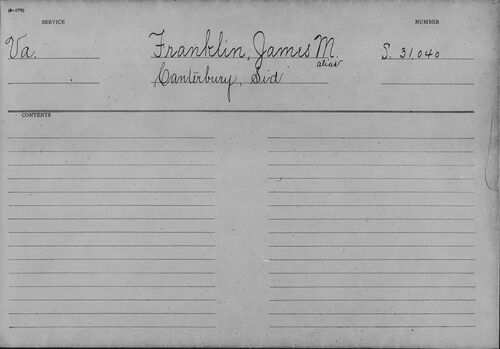 (3-1775)
SERVICE NUMBER
Va. Franklin, James M. S. 31,040
alias
Canterbury, Sid
CONTENTS